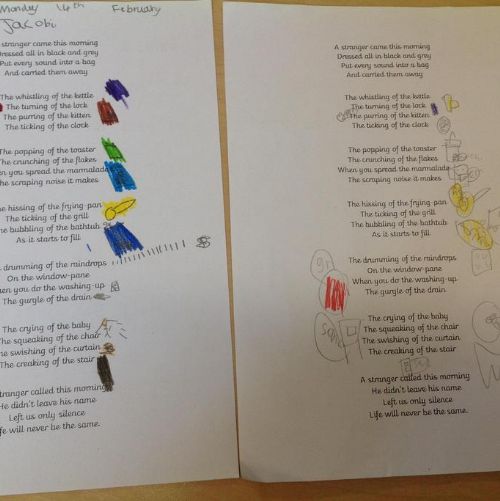 Monday 14th February
Jacobi
stranger came this morning
Dressed all in black and grey
Put every sound into a bag
And carried them away
The whistling of the kettle
The turning of the lock
The purring of the kitten
The ticking of the clock
The popping of the toaster
The crunching of the flakes
en you spread the marmalade
he scraping noise it makes
he hissing of the frying-pan
The ticking of the grill
he bubbling of the bathtub
As it starts to fill
e drumming of the raindrops
On the window-pane
hen you do the washing-up
The gurgle of the drain
The crying of the baby
he squeaking of the chair
he swishing of the curtain
The creaking of the stair
tranger called this morning
He didn't leave his name
Left us only silence
fe will never be the same.
A stranger came this morning
Dressed all in black and grey
Put every sound into a bag
And carried them away
The whistling of the kettle
The turning of the lock
The purring of the kitten
The ticking of the clock
The popping of the toaster
The crunching of the flakes
When you spread the marmalade
The scraping noise it makes
The hissing of the frying-pan
The ticking of the grill
The bubbling of the bathtub
As it starts to fill
The drumming of the raindrops
On the window-pane
When you do the washing-up
The gurgle of the drain
The crying of the baby
The squeaking of the chair
The swishing of the curtain
The creaking of the stair
A stranger called this morning
He didn't leave his name
Left us only silence
Life will never be the same.